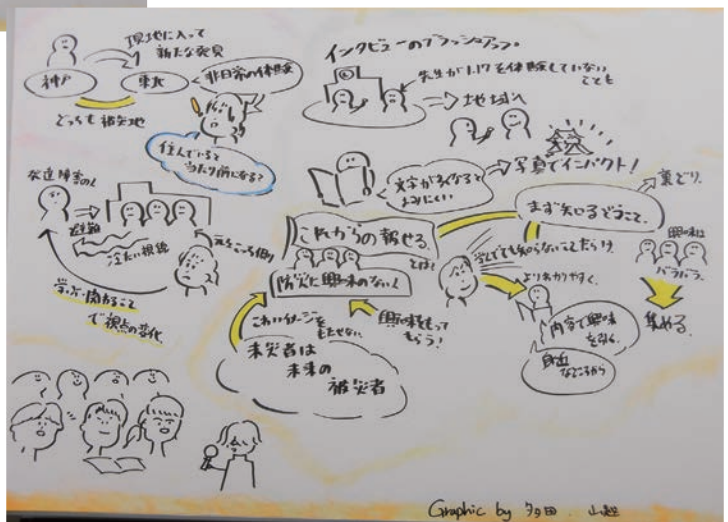 現地に入って
新たな発見
神戸
東北
非日常の体験
どっちも被災地
住んでいると
当たり前になる?
インタビューのブラッシュアップ。
先生が1.17を体験していない
ことも
地域へ
文字が多くなると
よみにくい
写真でインパクト!
発達障害の人
避難
冷たい視線
元々こっち側
学ぶ・関わること
で視点の変化
これからの報せる。
とは?
防災に興味のない人
こわいイメージを
もたせない
興味もって
もらう!
未災者は
未来の
被災者
まず知るということ。
裏どり。
学んでも知らないことだらけ。
よりわかりやすく。
内容で興味
を引く。
身近
なところから
興味は
バラバラ。
集める。
Graphic by 多田